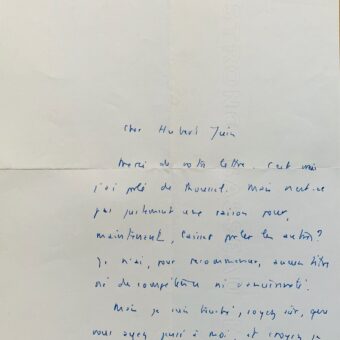 Cher Hubert Juin
Merci de votre lettre. C'est vrai
j'ai parlé de Roussel. Mais n'est-ce
pas justement une raison pour,
maintenant, laisser parler les autres?
Je n'ai, pour recommencer, aucun titre
ni de compétence ni d'ancienneté.
Mais je suis touché, soyez sûr, que
vous ayez pensé à moi, et croyez je